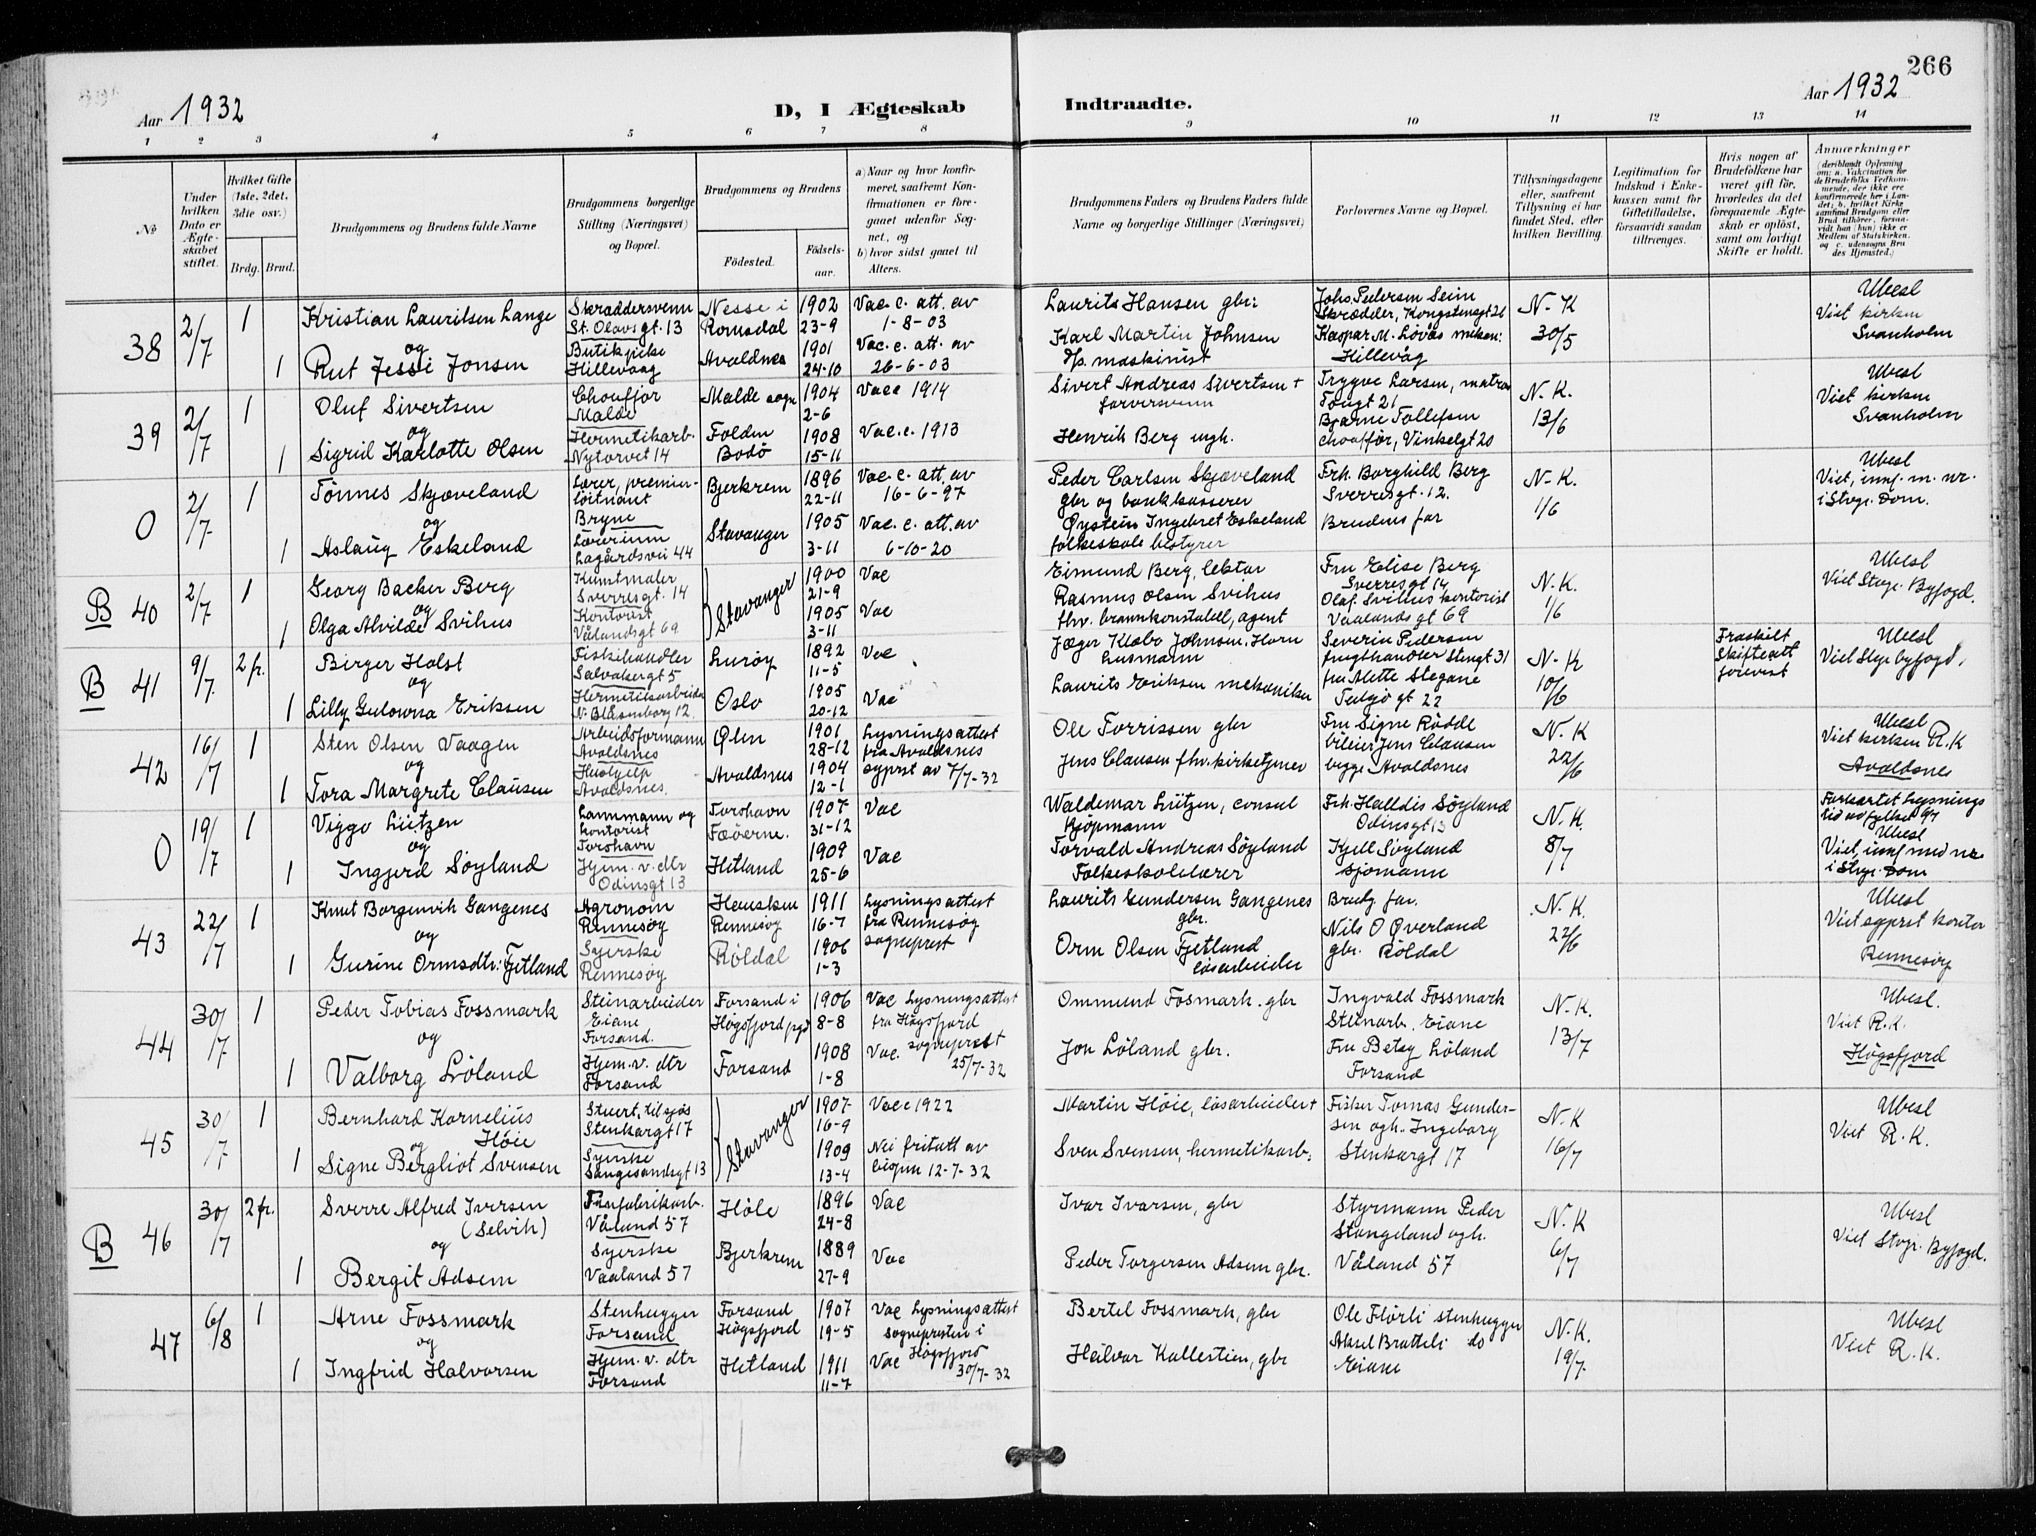 266
Aar 1932
D, I Ægteskab Indtraadte.
Aar 1932
1 2 3 4 5 6 7 8 9 10 11 12 13 14
No
Under hvilken Dato er Ægteskabet stiftet.
Hvilket Gifte (1ste, 2det, 3die osv.)
Brdg. Brud.
Brudgommens og Brudens fulde Navne
Brudgommens borgerlige Stilling (Næringsvei) og Bopæl.
Brudgommens og Brudens
Fødested.
Fødsels-aar.
a) Naar og hvor konfirmeret, saafremt Konfirmationen er foregaaet udenfor Sognet, og
b) hvor sidst gaaet til Alters.
Brudgommens Faders og Brudens Faders fulde Navne og borgerlige Stillinger (Næringsvei)
Forlovernes Navne og Bopæl.
Tillysningsdagene eller, saafremt Tillysning ei har fundet Sted, efter hvilken Bevilling
Legitimation for Indskud i Enkekassen samt for Giftetilladelse, forsaavidt saadan tiltrænges.
Hvis nogen af Brudefolkene har været gift før, hvorledes da det foregaaende Ægteskab er opløst, samt om lovligt Skifte er holdt.
Anmærkninger
(deriblandt Oplysning om: a. Vakcination for de Brudefolks Vedkommende, der ikke ere konfirmerede her i Landet; b. hvilket Kirkesamfund Brudgom eller Brud tilhører, forsaavidt han (hun) ikke er Medlem af Statskirken, og c. udensogns Brudes Hjemsted.)
38 2/7 1 Kristian Lauritsen Lange Skreddersvenn St. Olavsgt. 13 Nesse i Romsdal 1902 23-9 Vac. c. att. av 1-8-03 Laurits Hansen gbr. Johs. Pedersen Seim Skrædder, Kongstensgt 26 N-K 30/5 Ubesl Viet kirken Svanholm
og
1 Rut Jessi Jonsen Butikpike Hillevaag Avaldnes 1901 24-10 Vac. c. att. av 26-6-03 Karl Martin Johnsen d/s. maskinist Kaspar M. Løvås mekan: Hillevåg
39 2/7 1 Oluf Sivertsen Chouffør Malde Malde sogn 1904 2-6 Vacc 1914 Sivert Andreas Sivertsen + farversvenn Trygve Larsen, matros Fougt 21 N.K. 13/6 Ubesl Viet kirken Svanholm
og
1 Sigrid Karlotte Olsen Hermetikarb. Nytorvet 14 Folden Bodø 1908 15-11 Vac. c. 1913 Henrik Berg ugh. Bjarne Tollefsen chouffør, Vinkelgt 20
0 2/7 1 Tønnes Skjæveland Lærer, premier-løitnant Bryne Bjerkrem 1896 22-11 Vac. c. att. av 16-6-97 Peder Carlsen Skjæveland gbr og bankkasserer Frk. Borghild Berg Sverresgt. 12. N-K. 1/6 Ubesl Viet, innf. m. nr. i Stvgr. Dom.
og
1 Aslaug Eskeland Lærerinne Lagårdsvei 44 Stavanger 1905 3-11 Vac. c. att. av 6-10-20 Øystein Ingebret Eskeland folkeskole bestyrer Brudens far
B 40 2/7 1 Georg Backer Berg Kunstmaler Sverresgt. 14 Stavanger 1900 21-9 Vac Eimund Berg, lektor Fru Elise Berg Sverresgt 14 N.K. 1/6 Ubesl Viet Stvgr. Byfogd.
og
1 Olga Alvilde Svihus Kontorist Vålandsgt 69 1905 3-11 Vac Rasmus Olsen Svihus fhv. brannkonstabell, agent Olaf Svihus kontorist Vaalands gt 69
B 41 9/7 2 fr. Birger Holst Fiskehandler Salvakergt 5 Lurøy 1892 11-5 Vac Jæger Klæbo Johnsen, Horn husmann Severin Pedersen frugthandler Stengt 31 N-K 10/6 Fraskilt Skifteatt forevist Ubesl Viet Stvgr byfogd.
og
1 Lilly Gulowna Eriksen Hermetikarbeider N. Blåsenborg 12. Oslo 1905 20-12 Vac Laurits Eriksen mekaniker fru Mette Stegane Tedjø gt 22
42 16/7 1 Sten Olsen Vaagen Arbeidsformann Avaldsnes Ølen 1901 28-12 Lysningsattest fra Avaldsnes sgprst av 7/7-32 Ole Torrissen gbr Fru Signe Rødde N.K 22/6 Ubesl Viet kirken R.K Avaldsnes
og
1 Tora Margrete Clausen Hushjelp Avaldsnes. Avaldsnes 1904 12-1 Jens Clausen fhv. kirketjener bileier Jens Clausen begge Avaldsnes
0 19/7 1 Viggo Lützen Lannmann og kontorist Torshavn Torshavn Færøerne. 1907 31-12 Vac Waldemar Lützen, consul kjøpmann Frk. Halldis Søyland Odinsgt 13 N.K. 8/7 Forkortet lysningstid av fylket 9/7 Ubesl Viet, innf med nr i Stvgr. Dom
og
1 Ingjerd Søyland Hjem. v. dtr Odinsgt 13 Hetland 1909 25-6 Vac Torvald Andreas Søyland Folkeskolelærer Kjell Søyland sjømann
43 22/7 1 Knut Borgenvik Gangenes Agronom Rennesøy Hausken Rennesøy 1911 16-7 Lysningsattest fra Rennesøy sogneprest Laurits Gundersen Gangenes gbr. Brudg far. N.K. 22/6 Ubesl Viet sgprst kontor Rennesøy
og
1 Gurine Ormsdtr: Fjetland Syerske Rennesøy Røldal 1906 1-3 Orm Olsen Fjetland løsarbeider Nils O Øverland gbr. Røldal
44 30/7 1 Peder Tobias Fossmark Steinarbeider Eiane Forsand. Forsand i Høgsfjord pgd 1906 8-8 Vac Lysningsattest fra Høgsfjord Ommund Fosmark. gbr Ingvald Fossmark Steinarb. Eiane N.K. 13/7 Ubesl. Viet R.K. Høgsfjord
og
1 Valborg Løland Hjem. v. dtr Forsand Forsand 1908 1-8 Vac. sogneprest 25/7-32 Jon Løland gbr. Fru Betsy Løland Forsand
45 30/7 1 Bernhard Kornelius Høie Stuert, tilsjøs Stenkargt 17 Stavanger 1907 16-9 Vacc 1922 Martin Høie, løsarbeider + Fisker Tomas Gundersen ogh. Ingeborg Stenkargt 17 N.K 16/7 Ubesl Viet R.K.
og
1 Signe Bergliot Svensen Syerske Langesandsgt 13 1909 13-4 Nei fritatt av biopn 12-7-32 Sven Svensen, hermetikarb:
B 46 30/7 2 fr. Sverre Alfred Iversen (Selvik) Våland 57 Høle 1896 24-8 Vac Ivar Ivarsen, gbr Styrmann Peder Stangeland ogh. Våland 57 N.K 6/7 Ubesl Viet Stvgr. Byfogd.
og
1 Bergit Adsem Syerske Vaaland 57 Bjerkrem 1889 27-9 Vac Peder Torgersen Adsem gbr.
47 6/8 1 Arne Fossmark Stenhugger Forsand Forsand Høgsfjord 1907 19-5 Vac Lysningsattest sognepresten i Bertel Fossmark, gbr Ole Flørli stenhugger N.K. 19/7 Ubesl Viet R.K.
og
1 Ingfrid Halvorsen Hjem. v. dtr Forsand Hetland 1911 11-7 Vac Høgsfjord 30/7-32 Heilvar Kallestien, gbr Aksel Bratteli do Eiane